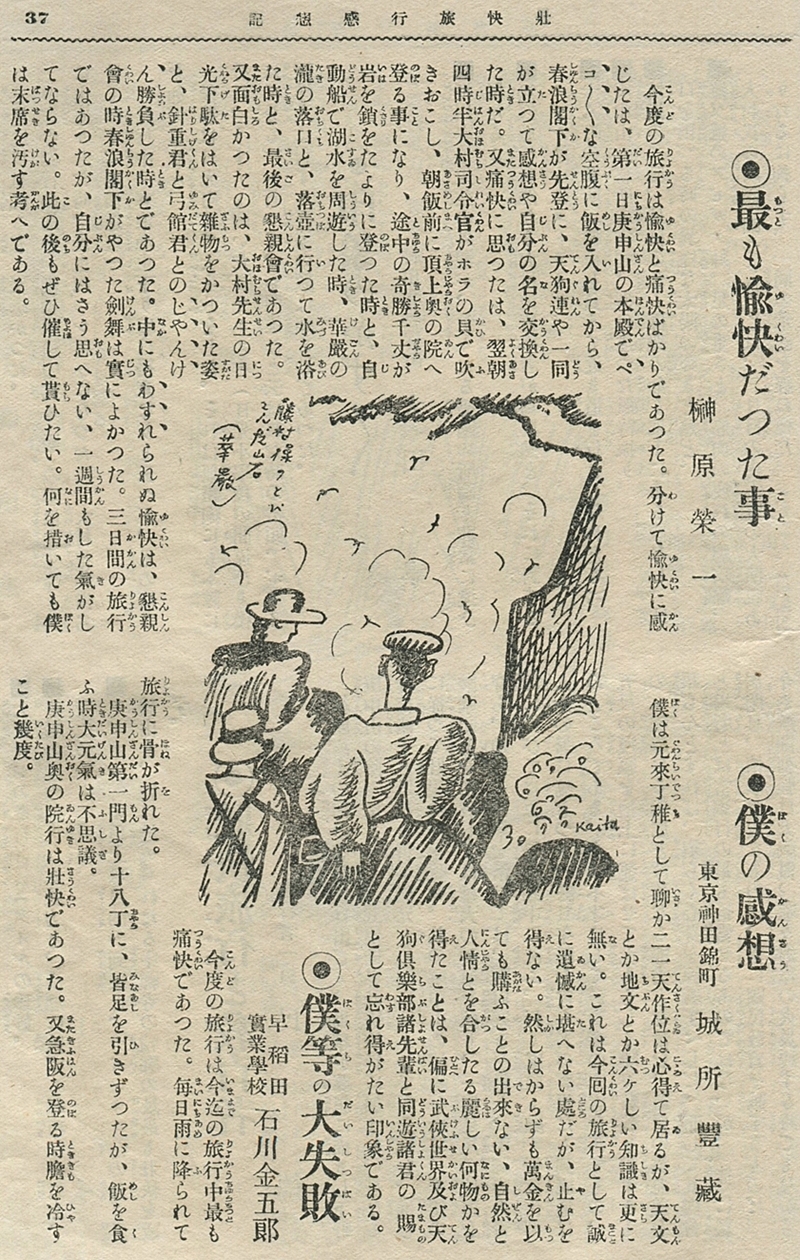 37
壯快旅行感想記
◉最も愉快だつた事
榊原榮一
今度の旅行は愉快と痛快ばかりであつた。分けて愉快に感
じたは、第一日庚申山の本殿でペ
コ〱な空腹に飯を入れてから、
春浪閣下が先登に、天狗連や一同
が立つて感想や自分の名を交換し
た時だ。又痛快に思つたは、翌朝
四時半大村司令官がホラの貝で吹
きおこし、朝飯前に頂上奧の院へ
登る事になり、途中の奇勝千丈が
岩を鎖をたよりに登つた時と、自
動船で湖水を周遊した時、華嚴の
瀧の落口と、落壺に行つて水を浴
た時と、最後の懇親會であつた。
又面白かつたのは、大村先生の日
光下駄をはいて雜物をかついた姿
と、針重君と弓館君とのじやんけ
ん勝負した時とであつた。中にもわすれられぬ愉快は、懇親
會の時春浪閣下がやつた劍舞は實によかつた。三日間の旅行
ではあつたが、自分にはさう思へない、一週間もした氣がし
てならない。此の後もぜひ催して貰ひたい。何を措いても僕
は末席を汚す考へである。
(華嚴)
Kaita
◉僕の感想
東京神田錦町 城所豐藏
僕は元來丁稚として聊か二一天作位は心得て居るが、天文
とか地文とか六ケしい知識は更に
無い。これは今囘の旅行として誠
に遺憾に堪へない處だが、止むを
得ない。然しはからずも萬金を以
ても購ふことの出來ない、自然と
人情とを合したる麗しい何物かを
得たことは、偏に武俠世界及び天
狗倶樂部諸先輩と同遊諸君の賜
として忘れ得がたい印象である。
◉僕等の大失敗
早稻田
實業學校 石川金五郎
今度の旅行は今迄の旅行中最も
痛快であつた。毎日雨に降られて
旅行に骨が折れた。
庚申山第一門より十八丁に、皆足を引きずつたが、飯を食
ふ時大元氣は不思議。
庚申山奧の院行は壯快であつた。又急阪を登る時膽を冷す
こと幾度。